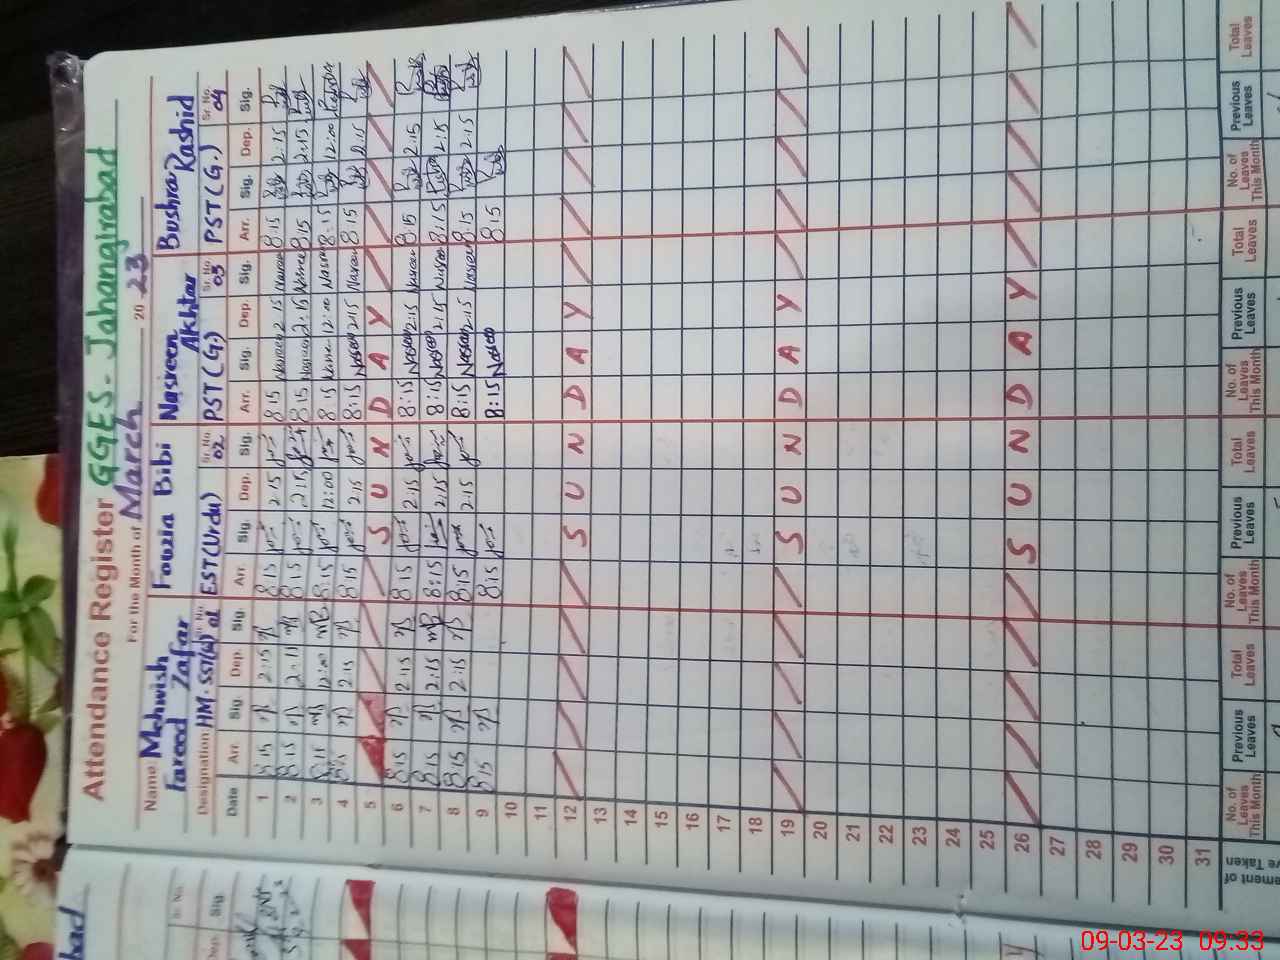 Attendance Register GGES - Jahangirabad
For the Month of March 2023
Name: Mehwish Fareed Zafar Fouzia Bibi Nasreen Akhtar Bushra Rashid
Designation HM. SST(G) Sr. No. 01 EST(Urdu) Sr. No. 02 PST(G.) Sr. No. 03 PST(G.) Sr. No. 04
Date Arr. Sig. Dep. Sig. Arr. Sig. Dep. Sig. Arr. Sig. Dep. Sig. Arr. Sig. Dep. Sig.
1 8:15 2:15 8:15 2:15 8:15 2:15 8:15 2:15
2 8:15 2:15 8:15 2:15 8:15 2:15 8:15 2:15
3 8:15 12:00 8:15 12:00 8:15 12:00 8:15 12:00
4 8:15 2:15 8:15 2:15 8:15 2:15 8:15 2:15
5 S U N D A Y
6 8:15 2:15 8:15 2:15 8:15 2:15 8:15 2:15
7 8:15 2:15 8:15 2:15 8:15 2:15 8:15 2:15
8 8:15 2:15 8:15 2:15 8:15 2:15 8:15 2:15
9 8:15 8:15 8:15 8:15
10
11
12 S U N D A Y
13
14
15
16
17
18
19 S U N D A Y
20
21
22
23
24
25
26 S U N D A Y
27
28
29
30
31
No. of Leaves This Month Previous Leaves Total Leaves No. of Leaves This Month Previous Leaves Total Leaves No. of Leaves This Month Previous Leaves Total Leaves No. of Leaves This Month Previous Leaves Total Leaves
09-03-23 09:33